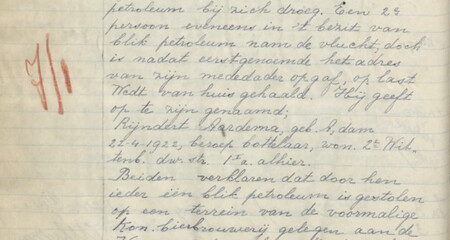 petroleum bij zich droeg. Een 2e
persoon eveneens in 't bezit van
blik petroleum nam de vlucht, doch
is nadat eerstgenoemde het adres
van zijn mededader opgaf, op last
Wdt. van huis gehaald. Hij geeft
op te zijn genaamd;
Rijndert geb. A'dam
22-4-1922, beroep bottelaar, won. 2e Wit-
tenb. dwr. str. alhier.
Beiden verklaren dat door hen
ieder één blik petroleum is gestolen
op een terrein van de voormalige
Kon. bierbrouwerij gelegen aan de